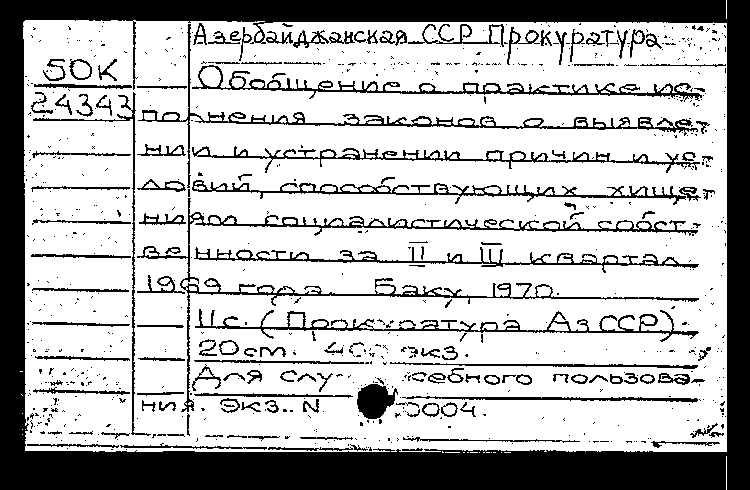 Азербайджанская ССР Прокуратура
50К
24343
Обобщение о практике ис-
полнения законов о выявле-
нии и устранении причин и ус-
ловий, способствующих хище-
ниям социалистической собст-
венности за II и III квартал
1969 года. Баку, 1970.
11с. (Прокуратура АзССР).
20см. 400 экз.
Для слу себного пользова-
ния. Экз. N 0004.